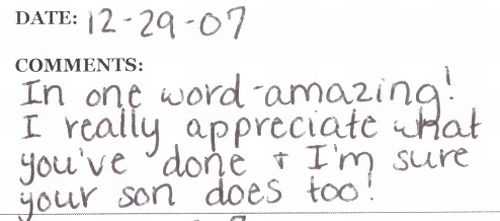 DATE: 12-29-07
COMMENTS:
In one word-amazing!
I really appreciate what
you've done + I'm sure
your son does too!